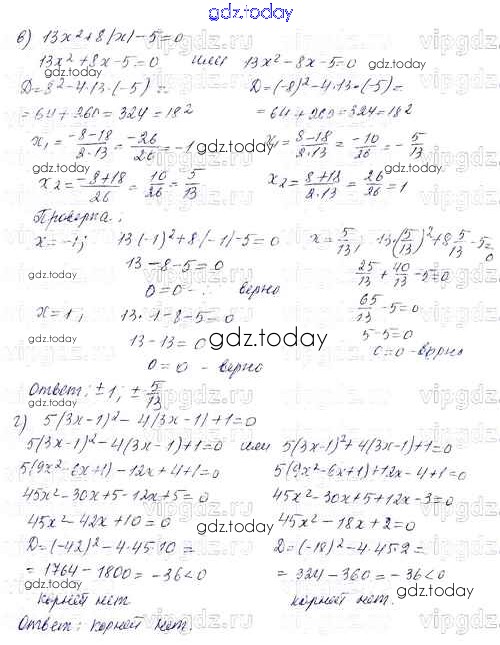 gdz.today
в) 13x²+8|x|-5=0
13x²+8x-5=0 или 13x²-8x-5=0
D=8²-4·13·(-5)= D=(-8)²-4·13·(-5)=
=64+260=324=18² =64+260=324=18²
x₁=(-8-18)/(2·13)=-26/26=-1 x₁=(8-18)/(2·13)=-10/26=-5/13
x₂=(-8+18)/26=10/26=5/13 x₂=(8+18)/(2·13)=26/26=1
Проверка:
x=-1; 13(-1)²+8|-1|-5=0 x=5/13; 13·(5/13)²+8·5/13-5=0
13-8-5=0 25/13+40/13-5=0
0=0 - верно 65/13-5=0
x=1; 13·1-8-5=0 5-5=0
13-13=0 0=0-верно
0=0 - верно
Ответ: ±1; ±5/13
г) 5(3x-1)²-4|3x-1|+1=0
5(3x-1)²-4(3x-1)+1=0 или 5(3x-1)²+4(3x-1)+1=0
5(9x²-6x+1)-12x+4+1=0 5(9x²-6x+1)+12x-4+1=0
45x²-30x+5-12x+5=0 45x²-30x+5+12x-3=0
45x²-42x+10=0 45x²-18x+2=0
D=(-42)²-4·45·10= D=(-18)²-4·45·2=
=1764-1800=-36<0 =324-360=-36<0
корней нет корней нет.
Ответ: корней нет.
gdz.today